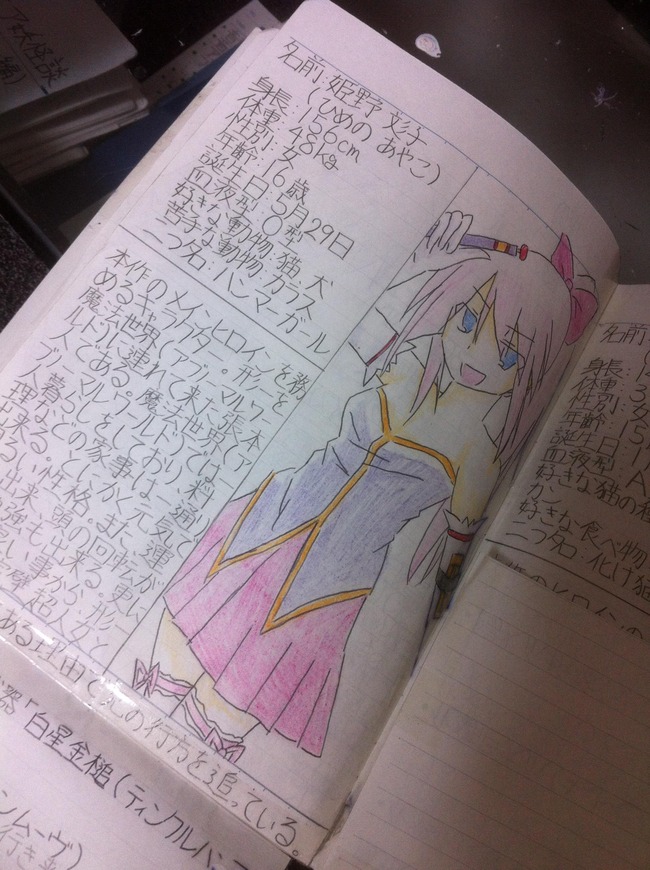 名前:姫野 彩子
(ひめの あやこ)
身長:156cm
体重:48kg
性別:女
年齢:16歳
誕生日:5月29日
血液型:O型
好きな動物:猫 犬
苦手な動物:カラス
二つ名:ハンマーガール
本作のメインヒロインを務
めるキャラクター。形一を
魔法世界(アブノーマルワー
ルド)に連れて来た張本
人である。魔法世界(ア
ブノーマルワールド)では一
人暮らしをしており、料
理などの家事は一通り
出来る。とにかく元気で明
るい性格。また、運動が
出来、頭の回転が速い
勉強も出来る。
事から、形一
超人女と
ある理由で兄の行方を追っている。
器「白星金槌(ティンクルハン
ンムーヴ)
行き
名前
身長
体重
性別:女
年齢:15
誕生日:1
血液型:A
好きな猫の種
か
好きな食べ物
二つ名:化け猫
ア女怪談
編)